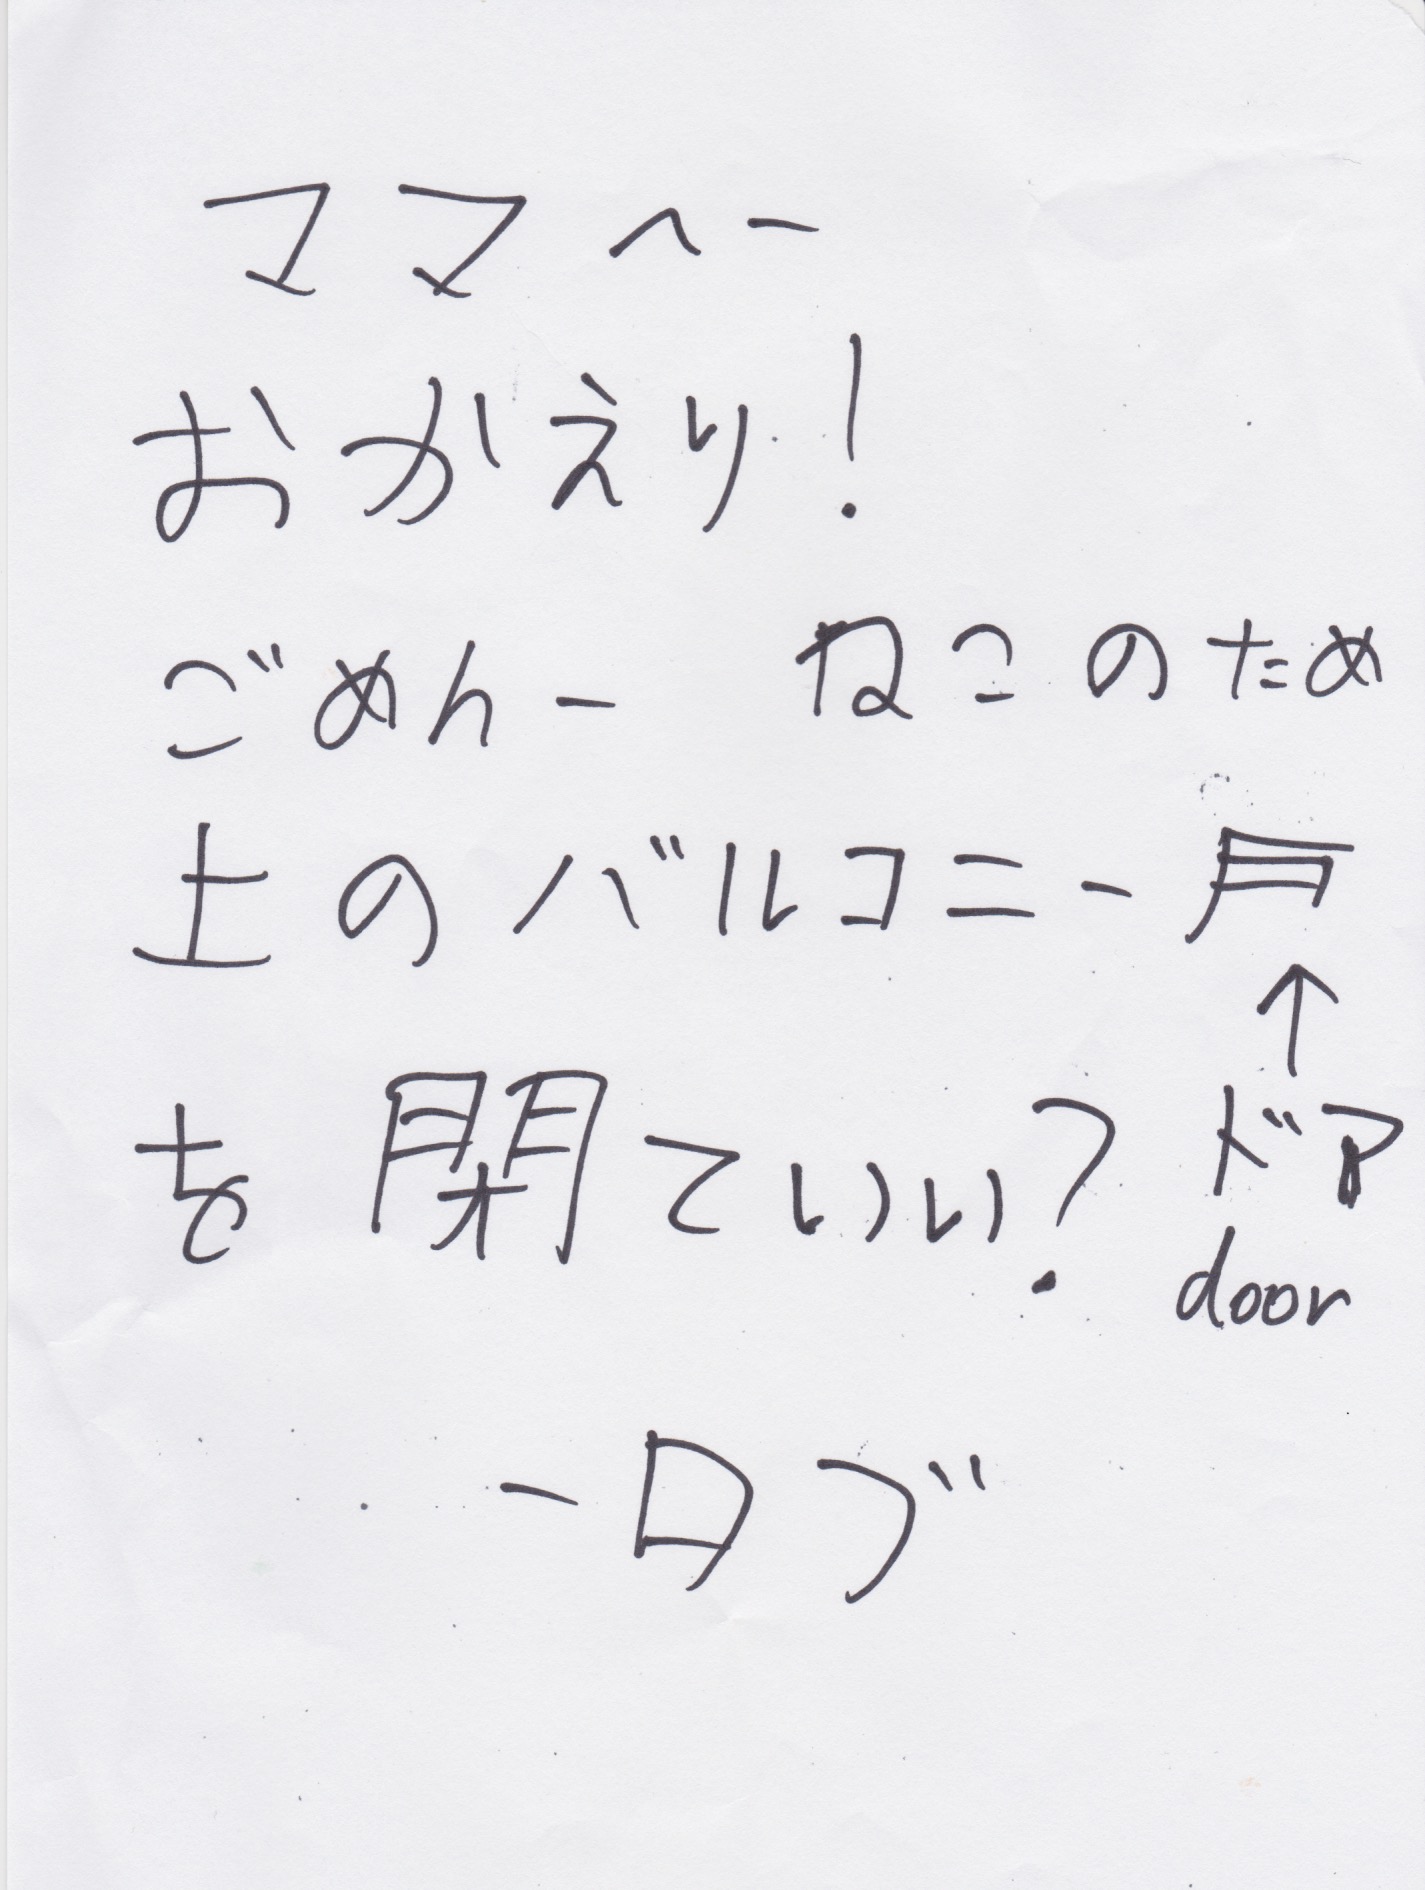 ママへー
おかえり!
ごめんー ねこのため
土のバルコニー戸
↑
を閉ていい? ドア
door
ーロブ